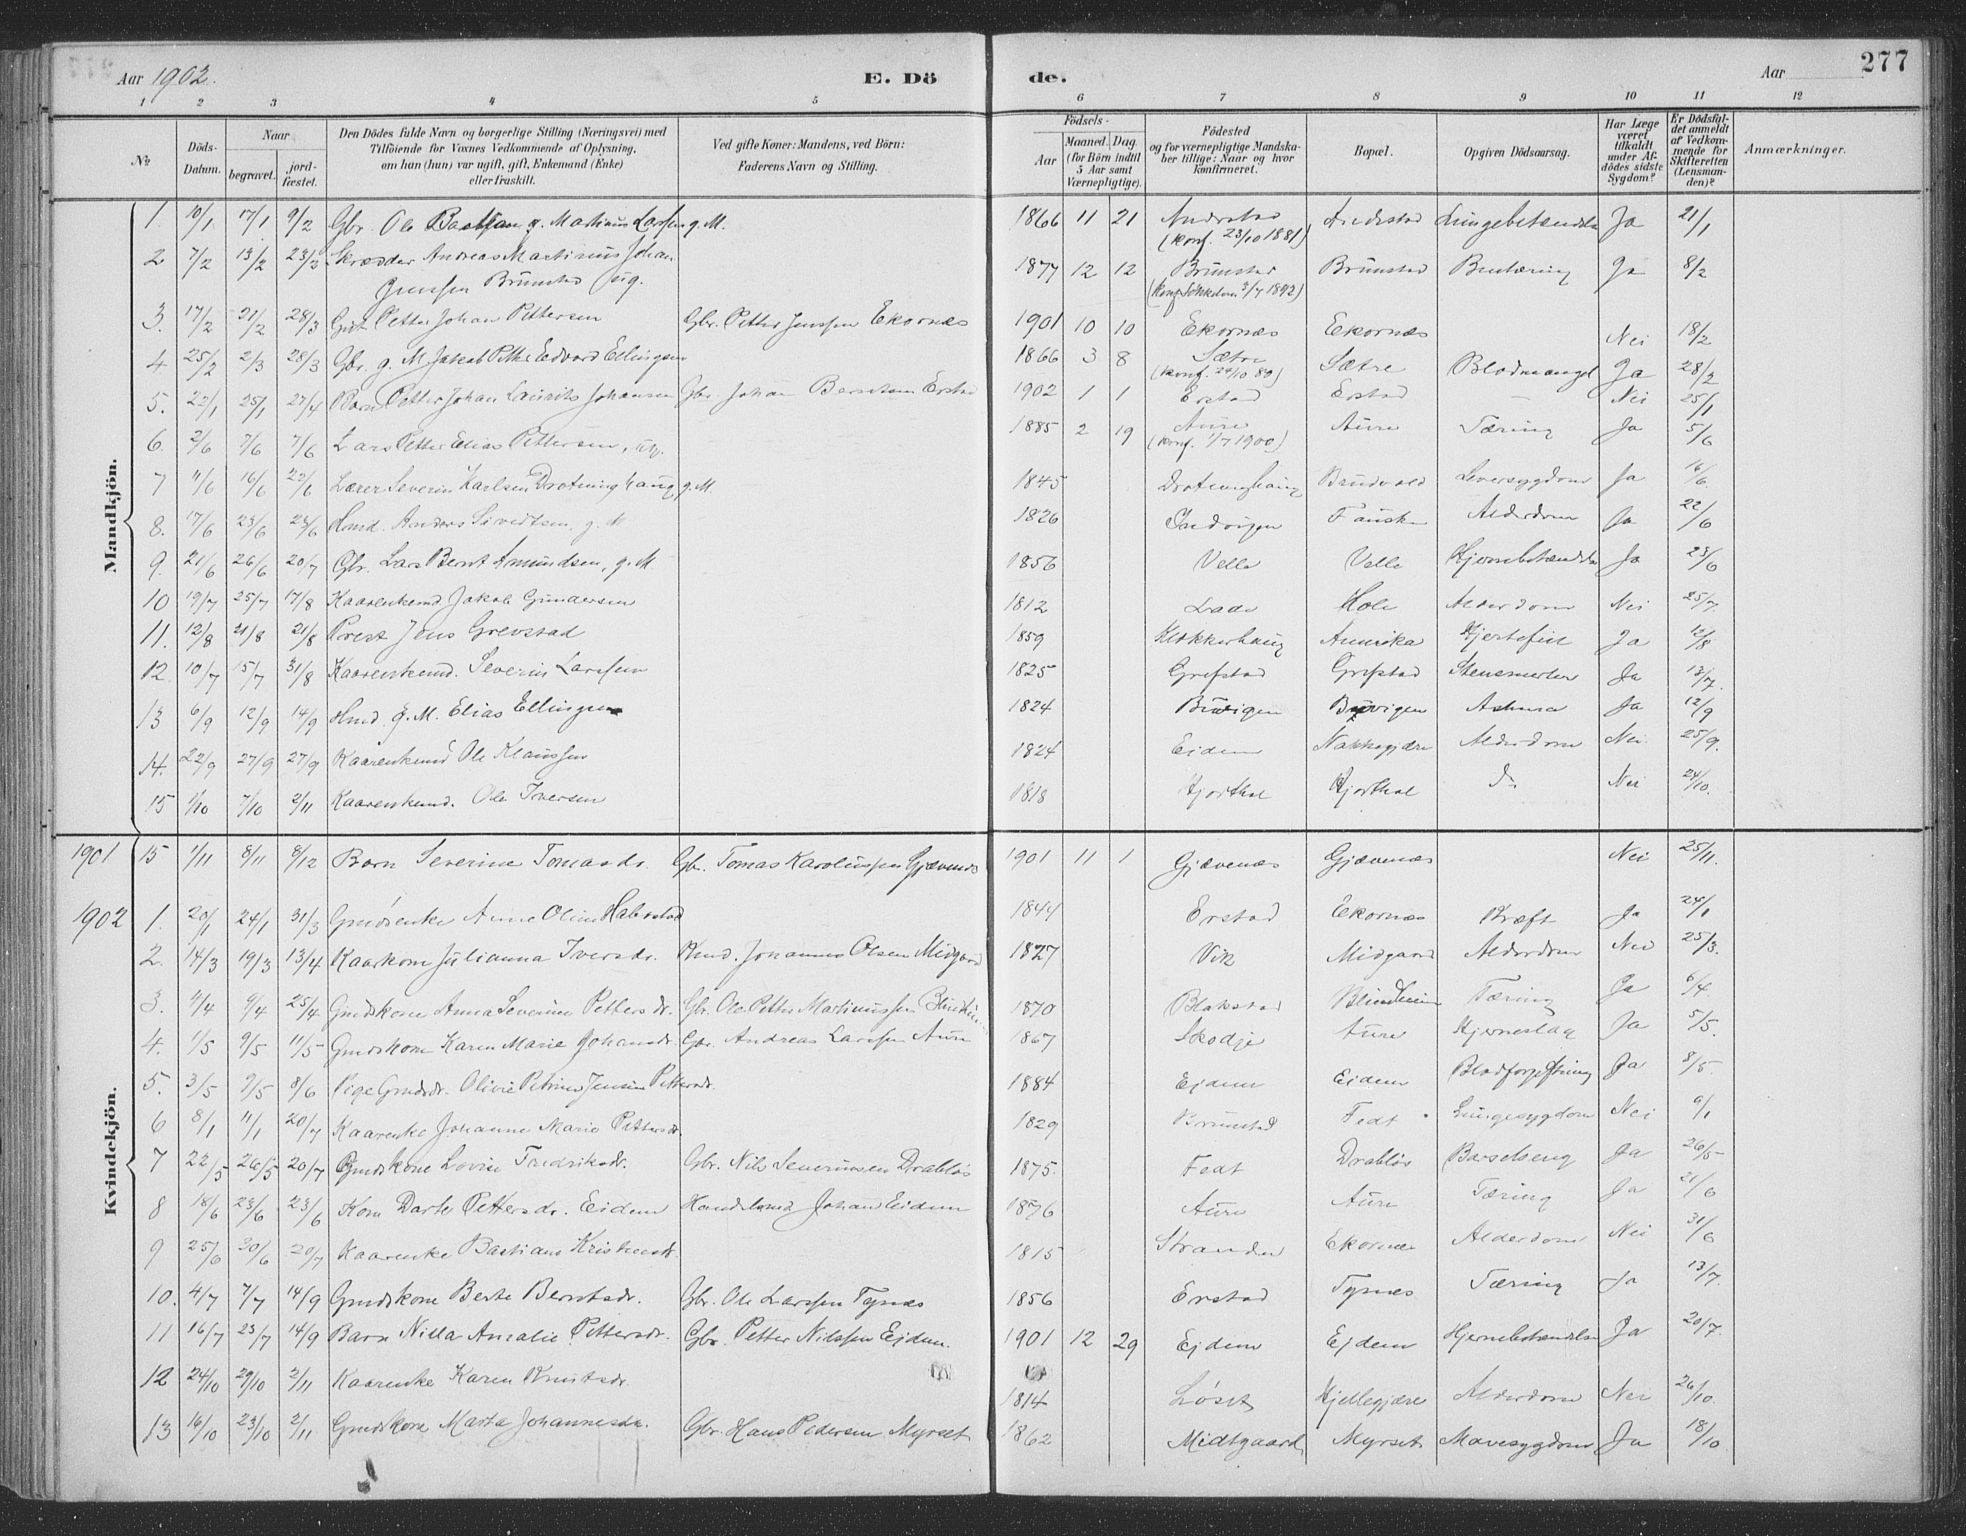 Aar 1902. E. Dö de. Aar 277
1 2 3 4 5 6 7 8 9 10 11 12
№ Döds-Datum. Naar begravet. jord-fæstet. Den Dödes fulde Navn og borgerlige Stilling (Næringsvei) med Tilföiende for Voxnes Vedkommende af Oplysning, om han (hun) var ugift, gift, Enkemand (Enke) eller fraskilt. Ved gifte Koner: Mandens, ved Börn: Faderens Navn og Stilling. Födsels- Aar Maaned. Dag. (for Börn indtil 5 Aar samt Værnepligtige). Födested og for værnepligtige Mandskaber tillige: Naar og hvor Konfirmeret. Bopæl. Opgiven Dödsaarsag. Har Læge været tilkaldt under Afdödes sidste Sygdom? Er Dödsfaldet anmeldt af Vedkommende for Skifteretten (Lensmanden)? Anmærkninger.
Mandkjön.
1. 10/1 17/1 9/2 Gbr. Ole Bastian g. Martinus Larssen g. M. 1866 11 21 Andestad (konf. 23/10 1881) Andestad Lungebetændelse Ja 21/1
2 7/2 13/2 23/3 Skræder Andreas Martinus Johan Jenssen Brunstad ug. 1877 12 12 Brunstad (konf. Søkkelven 3/7 1892) Brunstad Bentæring Ja 8/2
3. 17/2 21/2 28/3 Gut Petter Johan Pettersen Gbr. Petter Jenssen Ekornæs 1901 10 10 Ekornæs Ekornæs Nei 18/2
4 25/2 2/3 28/3 Gbr. g. M. Jakob Petter Edvard Ellingsen 1866 3 8 Sætre (konf. 24/10 80) Sætre Blodmangel Ja 28/2
5. 22/1 25/1 27/4 Barn Petter Johan Laurits Johansen Gbr. Johan Berntsen Erstad 1902 1 1 Erstad Erstad — Nei 25/1
6. 2/6 7/6 7/6 Lars Petter Elias Pettersen, ug. 1885 2 19 Aure (konf. 1/7 1900) Aure Tæring Ja 5/6
7 11/6 16/6 22/6 Lærer Severin Karlsen Drotninghaug g. M. 1845 Drotninghaug Brudvold Leversygdom Ja 16/6
8. 17/6 23/6 23/6 Hmd. Anders Sivertsen, g. M 1826 Indvigen Fauske Alderdom Ja 22/6
9. 21/6 26/6 20/7 Gbr. Lars Bernt Amundsen, g. M 1856 Velle Velle Hjernebetændelse Ja 23/6
10 19/7 25/7 17/8 Kaarenkemd Jakob Gundersen 1812 Lade Hole Alderdom Nei 25/7.
11. 12/8 21/8 21/8 Prest Jens Grevstad 1859 Klokkerhaug Amerika Hjertefeil Ja 12/8
12. 10/7 15/7 31/8 Kaarenkemd. Severin Larssen 1825 Grefstad Grefstad Stensmerter Ja 13/7.
13 6/9 12/9 14/9 Hmd. g. M. Elias Ellingsen 1824 Buvigen Buvigen Astma Ja 12/9
14. 22/9 27/9 27/9 Kaarenkemd Ole Klaussen 1824 Eidem Nakkegjære Alderdom Nei. 25/9.
15 1/10 7/10 2/11 Kaarenkemd. Ole Iversen 1818 Hjorthol Hjorthol do Nei 24/10.
Kvindekjön.
1901 15 1/11 8/11 8/12 Barn Severine Tomasdr. Gbr. Tomas Karolussen Gjævenæs 1901 11 1 Gjævenæs Gjævenæs Nei 25/11.
1902 1. 20/1 24/1 31/3 Grmdsenke Anne Oline Haberstad 1844 Erstad Ekornæs Kræft Ja 24/1
2. 14/3 19/3 13/4 Kaarkone Julianna Iversdr. Kmd. Johannes Olsen Midgard 1827 Vik Midgaard Alderdom Nei 25/3.
3. 4/4 9/4 25/4 Gmdskone Anna Severine Pettersdr. Gbr. Ole Petter Martinussen Blindheim 1870 Blakstad Blindheim Tæring Ja 6/4.
4. 1/5 9/5 11/5 Gmdskone Karen Marie Johansdr. Gbr. Andreas Larssen Aure 1867 Skodje Aure Hjerneslag Ja 5/5.
5. 3/5 9/5 8/6 Pige Grmdsdr. Olivie Petrine Jensine Pettersdr. 1884 Eidem Eidem Blodforgiftning Ja 8/5.
6 8/1 11/1 20/7 Kaarenke Johanne Marie Pettersdr. 1829 Brunstad Fedt Lungesygdom Nei 9/1
7 22/5 26/5 20/7 Gmdskone Lovise Fredriksdr. Gbr. Nils Severinsen Drabløs 1875. Fedt Drabløs Barselseng Ja 26/5
8 18/6 23/6 23/6 Kone Dorte Pettersdr. Eidem Handelsmd Johan Eidem 1876 Aure Aure Tæring Ja 21/6
9 25/6 30/6 20/7 Kaarenke Bastiane Kristensdr. 1815 Stranden Ekornæs Alderdom Nei 31/6
10. 4/7 7/7 14/9 Gmdskone Berte Berntsdr. Gbr. Ole Larssen Tynæs 1856 Erstad Tynæs Tæring Ja 13/7.
11 16/7 23/7 14/9 Barn Nilla Amalie Pettersdr. Gbr. Petter Nilssen Eidem. 1901 12 29 Eidem Eidem Hjernebetændelse Ja 20/7.
12 24/10 29/10 2/11 Kaarenke Karen Knutsdr. 1814 Løset Hjellegjære Alderdom Nei 26/10.
13 16/10 23/10 2/11 Gmdskone Marta Johannesdr. Gbr. Hans Pedersen Myrset 1862 Midtgaard Myrset Mavesygdom Ja 18/10.